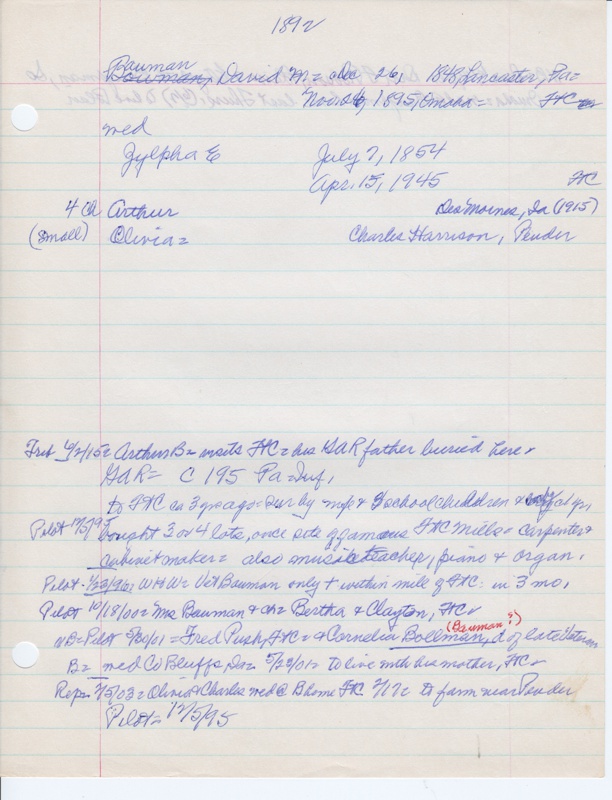 1892
Bauman
Bowman, David M = Dec 26, 1848, Lancaster, Pa=
Nov 26, 1895, Omaha = FtC
med
Zylpha E July 7, 1854
Apr. 15, 1945 FtC
4 Ch Arthur Des Moines, Ia (1915)
(small) Olivia = Charles Harrison, Pender
Trib 6/2/15 = Arthur B = visits FtC = his GAR father buried here
GAR = C 195 Pa = Inf,
to FtC ca 3 yrs ago = sur by wife & 3 school children &
Pilot 12/5/95 bought 3 or 4 lots, once site of famous FtC Mills = Carpenter &
cabinet maker = also music teacher, piano & organ.
Pilot - 1/22/96 = W H W = Vet Bauman only + within mile of FtC in 3 mo,
Pilot 10/18/00 = Mrs Bauman & ch = Bertha & Clayton, FtC
(Bauman?)
= Pilot 5/30/01 = Fred Push, FtC = & Cornelia Bollman, d of late Veteran
B = med Co Bluffs, Ia = 5/23/01 = to live with his mother, FtC
Rep = 3/5/03 = Olivia & Charles med @ B home FtC 2/17 = to farm near Pender
Pilot = 12/5/95